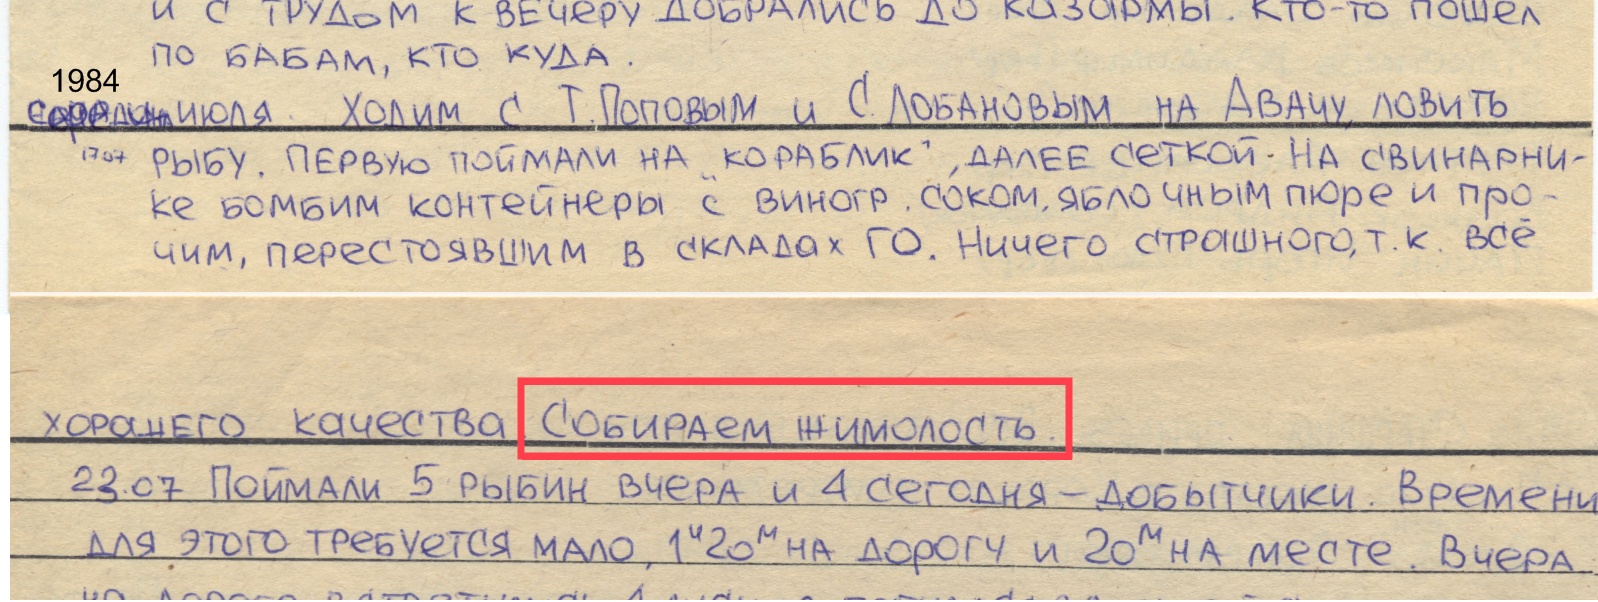 и с трудом к вечеру добрались до казармы. Кто-то пошел
по бабам, кто куда.
1984
июля. Ходим с Т.Поповым и С.Лобановым на Авачу ловить
17.07 рыбу. Первую поймали на „кораблик", далее сеткой. На свинарни-
ке бомбим контейнеры с виногр. соком, яблочным пюре и про-
чим, перестоявшим в складах ГО. Ничего страшного, т.к. всё
хорошего качества Собираем жимолость.
23.07 Поймали 5 рыбин вчера и 4 сегодня – добытчики. Времени
для этого требуется мало, 1ч20м на дорогу и 20м на месте. Вчера